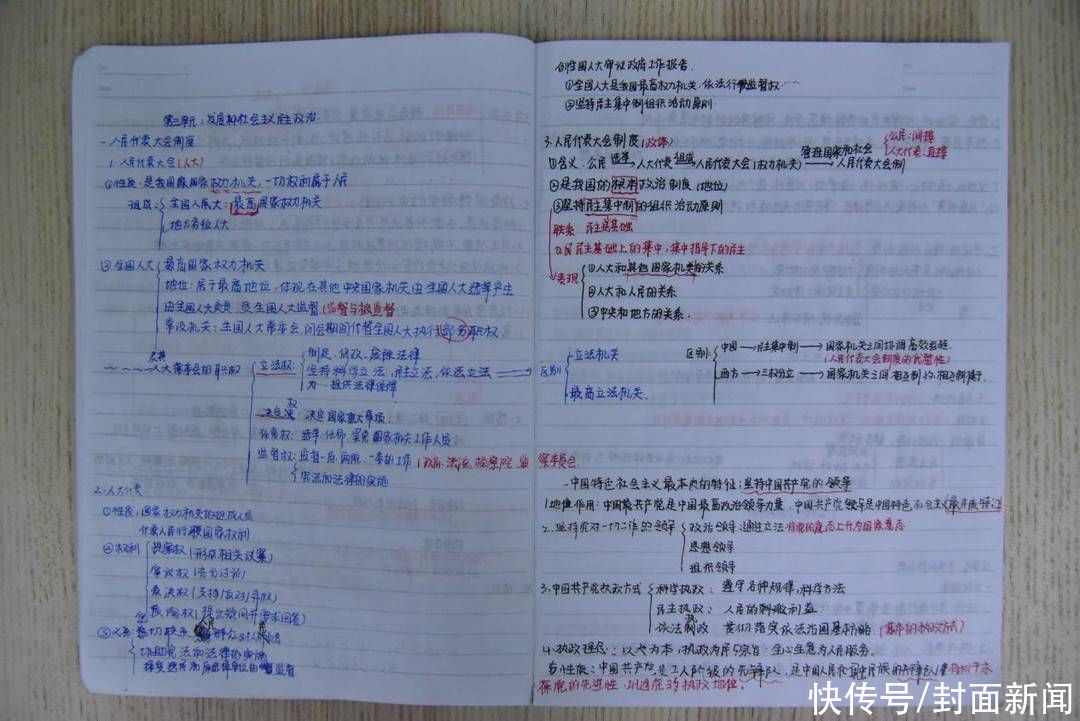 第三单元：发展社会主义民主政治
一.人民代表大会制度
1.人民代表大会(人大)
①性质：是我国国家权力机关，一切权利属于人民
组成：全国人大：最高国家权力机关
地方各级人大
②全国人大 最高国家权力机关
地位：居于最高地位，体现在其他中央国家机关由全国人大选举产生
由全国人大负责 受全国人大监督(监督与被监督
常设机关：全国人大常委会，闭会期间代替全国人大执行部分职权
人大常委会的职权
立法权：制定、修改、废除法律
坚持科学立法，民主立法，依法立法
为…提供法律保障
决定权：决定国家重大事项
任免权：选举、任命、罢免国家机关工作人员
监督权：监督一府、两院、一委的工作(政府、法院、检察院、监察委员会
宪法和法律的实施
2.人大代表
①性质：国家权力机关的组成人员
代表人民行使国家权利
②权利 提案权(形成相关议案)
审议权(充分讨论)
表决权(支持/反对/弃权)
质询权(提出疑问并要求回答)
③义务：密切联系群众
协助宪法和法律的实施
接受选民和原选举单位的监督
④全国人大审议政府工作报告
①全国人大是我国最高权力机关，依法行使监督权…
②坚持民主集中制组织活动原则
3.人民代表大会制度(政体)
公民：间接
人大代表：直接
①含义：公民 选举 人大代表 组成 人民代表大会(权力机关) 管理国家和社会 人民代表大会制
②是我国的根本政治制度(地位)
③坚持民主集中制的组织活动原则
联系 民主是基础
民主基础上的集中，集中指导下的民主
表现 ①人大和其他国家机关的关系
②人大和人民的关系
③中央和地方的关系
区别 立法机关
最高立法机关
区别：中国→民主集中制→国家机关之间协调高效运转
(人民代表大会制度的优越性)
西方→三权分立→国家机关之间相互制约，相互制衡
一.中国特色社会主义最本质的特征：坚持中国共产党的领导
1.地位作用：中国共产党是中国最高政治领导力量，中国共产党领导是中国特色社会主义最本质特征
2.坚持党对一切工作的领导 政治领导：通过立法将党的意志上升为国家意志
思想领导
组织领导
3.中国共产党执政方式 科学执政：遵守各种规律，科学方法
民主执政：人民的利益
依法执政 贯彻落实依法治国基本方略(基本的执政方式)
4.执政理念：以人为本，执政为民 全心全意为人民服务
5.性质：中国共产党是工人阶级的先锋队，是中国人民和中华民族的先锋队
保党的先进性，巩固党的执政地位
快传号/封面新闻